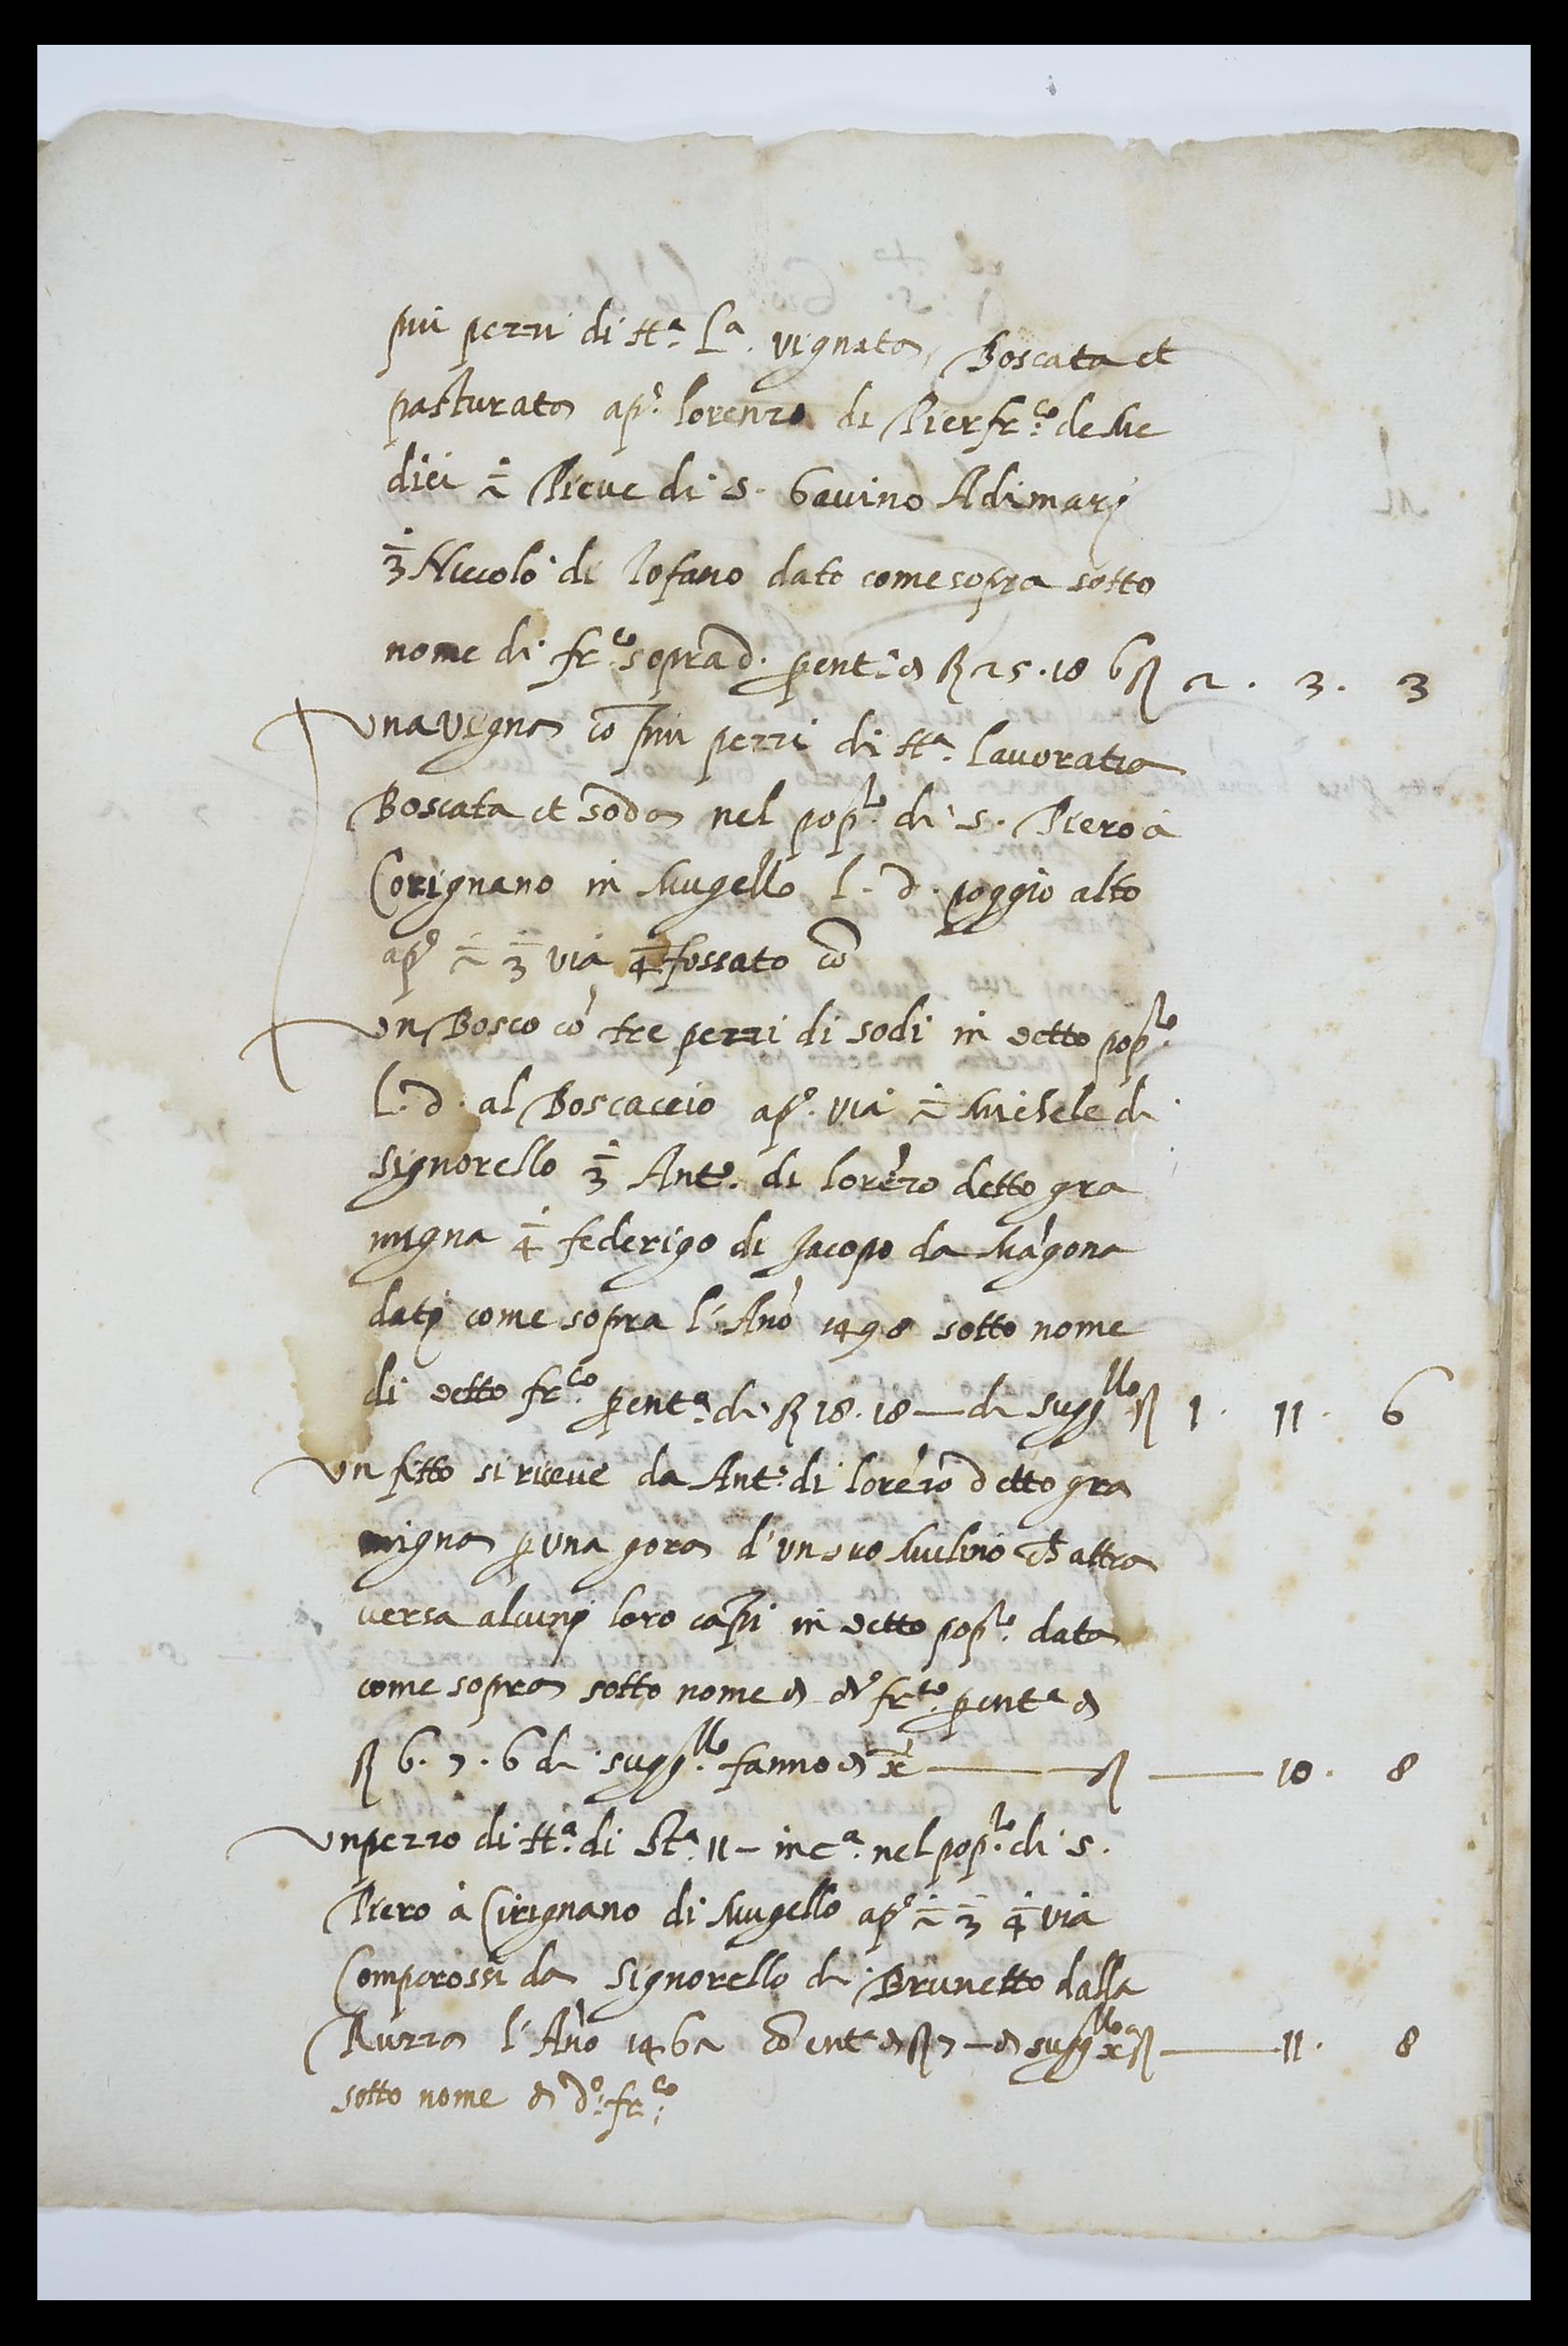 piu pezzi di tt.ª L.ª vignata, Boscata et
pasturata ap.º lorenzo di Pierfr.co de Me
dici 2 Pieve di S. Gavino Adimarj
3 Niccolò di Iofano dato come sopra sotto
nome di fr.co soprad. p ent.ª di ꝶ 25. 18 6 ꝶ 2. 3. 3
una vigna cō piu pezzi di tt.ª lavoratia
Boscata et soda nel pop.lo di S. Piero à
Corignano in Mugello l. d. poggio alto
ap.º 2 3 via 4 fossato cō
un Bosco cō tre pezzi di sodi in detto pop.lo
l. d. al Boscaccio ap.º via 2 Michele di
Signorello 3 Ant.º di lorēzo detto gra
migna 4 federigo di Jacopo da Māgona
datj come sopra l'Anō 1498 sotto nome
di detto fr.co p ent.ª di ꝶ 18. 18 — di sugg.llo ꝶ 1. 11. 6
un fitto si riceve da Ant.º di lorēzo detto gra
migna p una gora d'un suo Mulino ch attra
versa alcunj loro cāpi in detto pop.lo data
come sopra sotto nome di d.º fr.co p ent.ª di
ꝶ 6. 7. 6 di sugg.llo fanno di x.ª — ꝶ — 10. 8
un pezzo di tt.ª di St.ª 11 – in c.ª nel pop.lo di S.
Piero à Cirignano di Mugello ap.º 2 3 4 via
Comperossi da Signorello di Brunetto dalla
l'Anō 1462 cō ent.ª di ꝶ 7 – di sugg.llo x.ª ꝶ — 11. 8
sotto nome di d.º fr.co